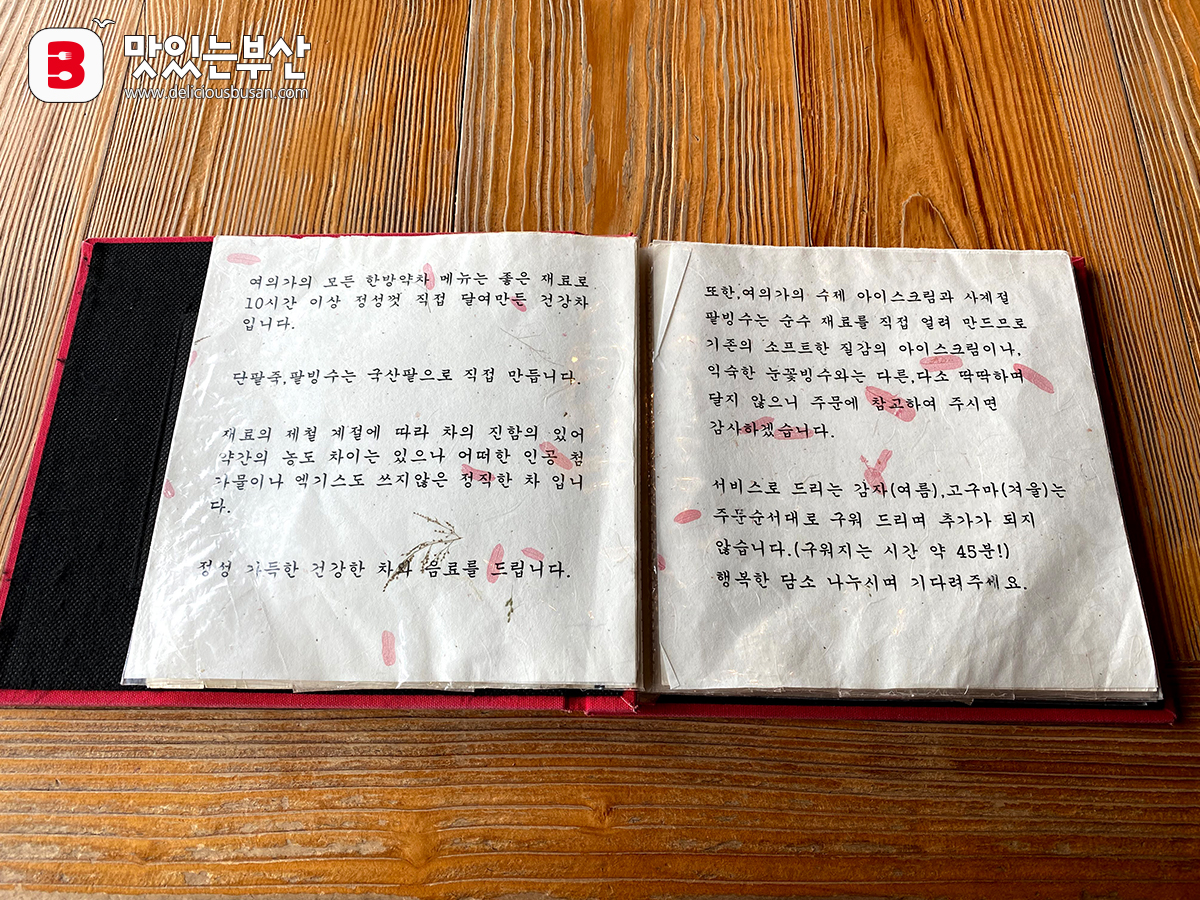 맛있는부산
www.deliciousbusan.com
여의가의 모든 한방약차 메뉴는 좋은 재료로
10시간 이상 정성껏 직접 달여만든 건강차
입니다.
단팥죽,팥빙수는 국산팥으로 직접 만듭니다.
재료의 제철 계절에 따라 차의 진함의 있어
약간의 농도 차이는 있으나 어떠한 인공 첨
가물이나 엑기스도 쓰지않은 정직한 차 입니
다.
정성 가득한 건강한 차와 음료를 드립니다.
또한,여의가의 수제 아이스크림과 사계절
팥빙수는 순수 재료를 직접 얼려 만드므로
기존의 소프트한 질감의 아이스크림이나,
익숙한 눈꽃빙수와는 다른,다소 딱딱하며
달지 않으니 주문에 참고하여 주시면
감사하겠습니다.
서비스로 드리는 감자(여름),고구마(겨울)는
주문순서대로 구워 드리며 추가가 되지
않습니다.(구워지는 시간 약 45분!)
행복한 담소 나누시며 기다려주세요.